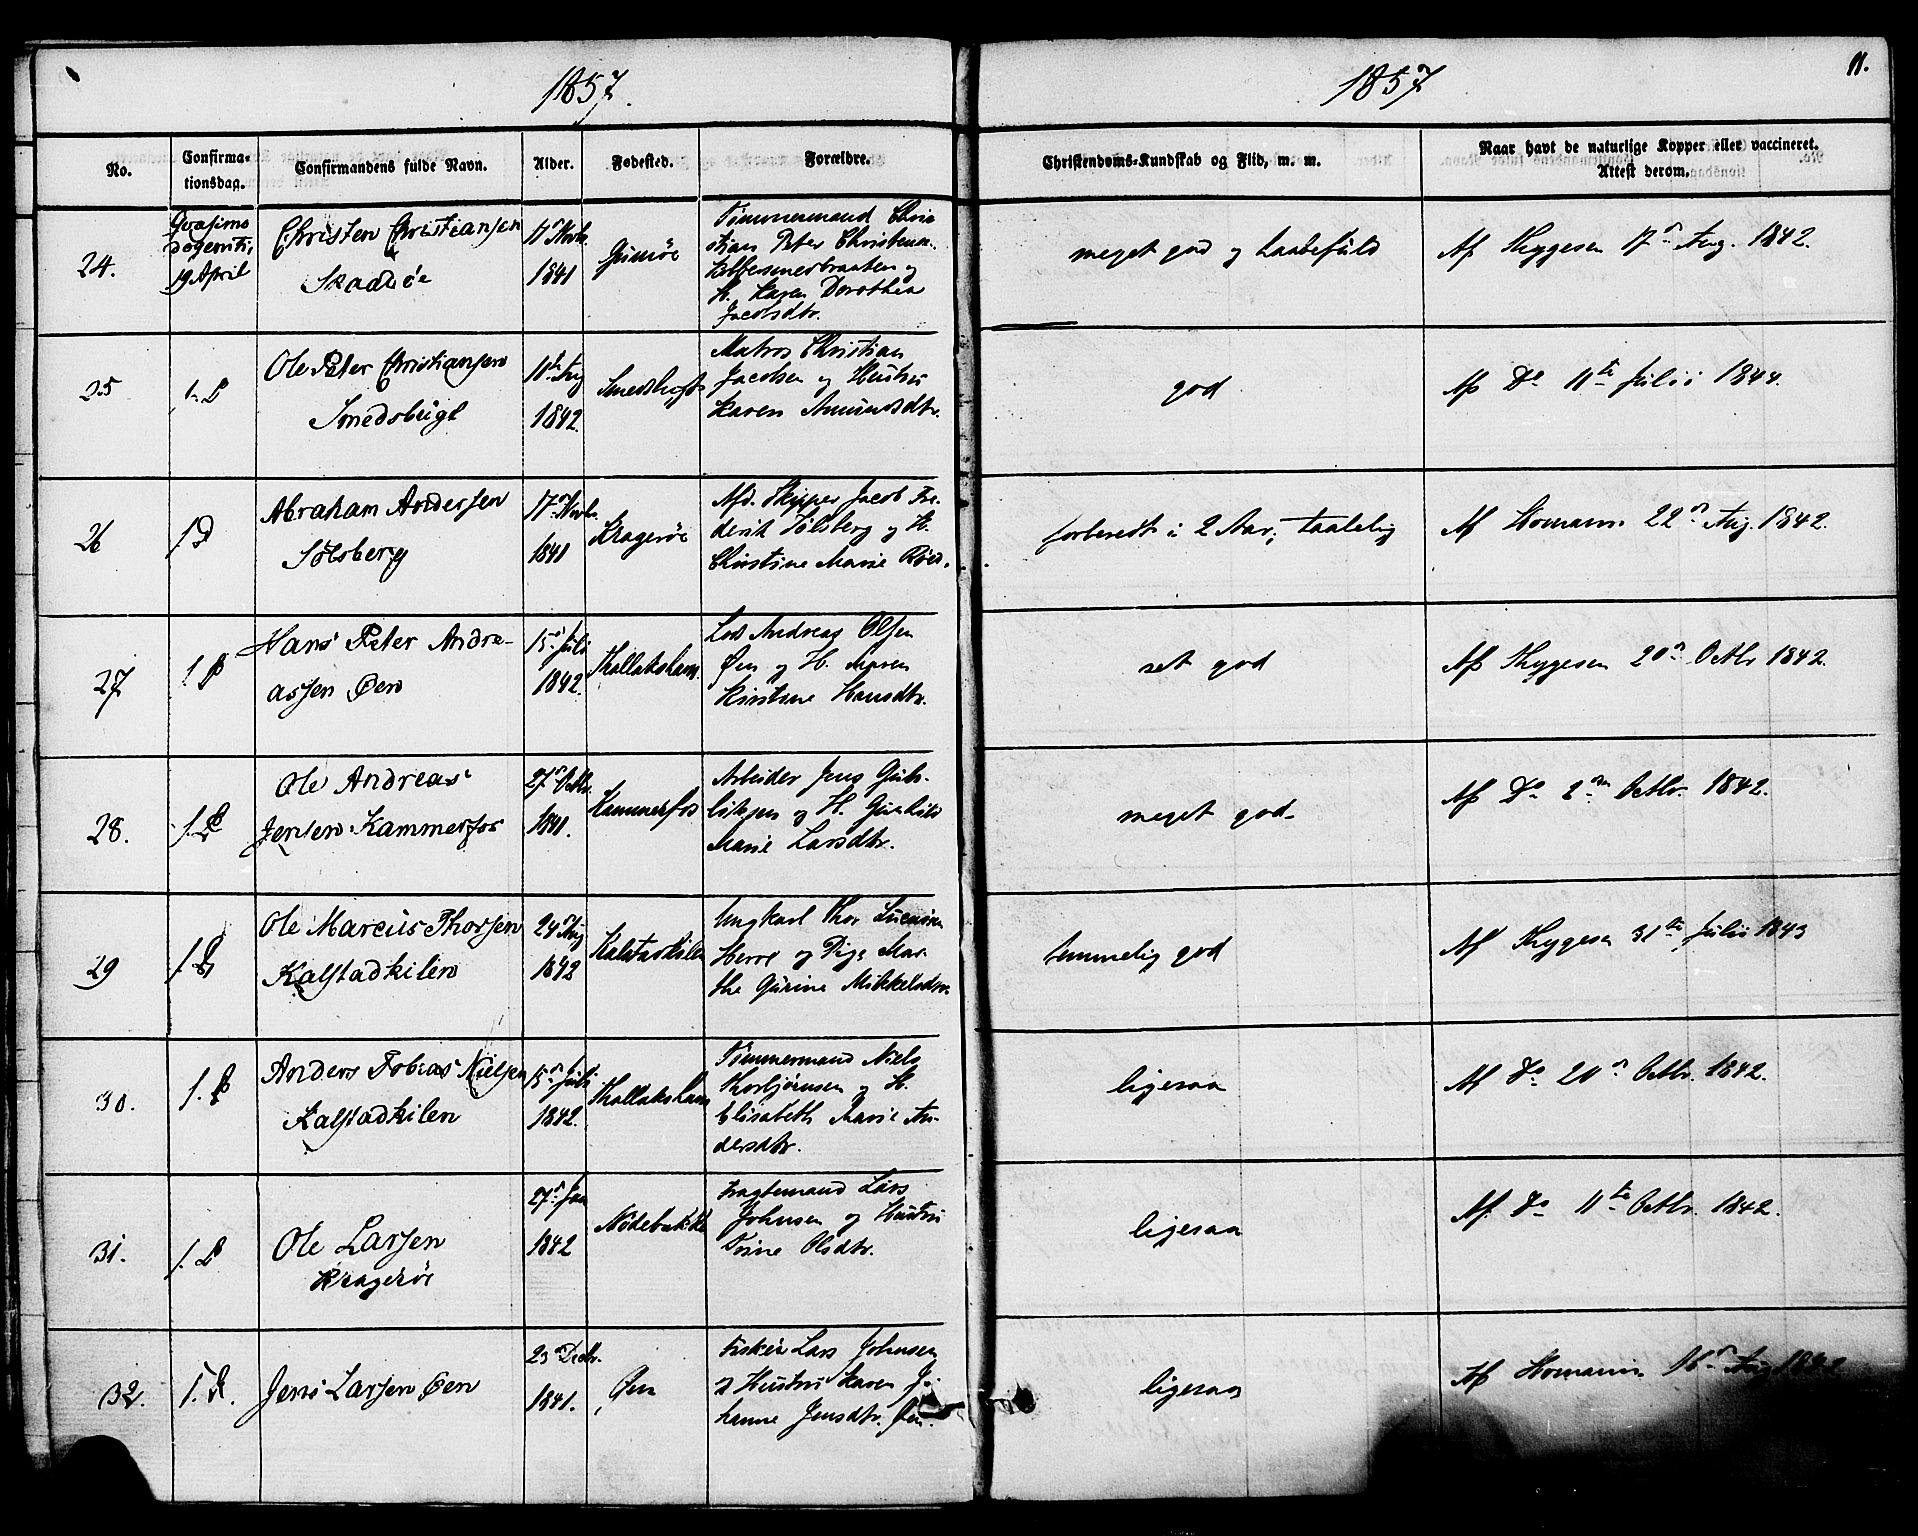 1857.
No.
Confirma-
tionsdag.
Confirmandens fulde Navn.
Alder.
Fødested.
Forældre.
24.
19 April
Christen Christiansen
Skadøe
11 Novbr.
1841
Gumøe
Tømmermand Chri
stian Peter
H. Karen Dorothea
Jacobsdtr.
25
Ole Peter Christiansen
Smedsbugt
1842.
Smedsbugt
Matros Christian
Jacobsen og Hustru
Karen Amundsdtr.
26
Abraham Andersen
Sølsberg
17 Novbr.
1841
Kragerøe
Afd. Skipper Jacob Fre-
derik Sølsberg og H.
Christine Marie
27
Hans Peter Andre-
assen Øen
15 Juli
1842.
Lods Andreas Olsen
Øen og H. Maren
Kirstine Hansdtr.
28.
Ole Andreas
Jensen Kammerfos
27 Octbr.
1841.
Kammerfos
Arbeider Jens
og H. Gunhild
Marie Larsdtr.
29
Ole Marcus Thorsen
Kalstadkilen
24 Aug
1842
Kalstadkilen
Ungkarl Thor
Herre og Pige Mar-
the Gurine Mikkelsdtr.
30.
Anders Tobias Nielsen
Kalstadkilen
15 Juli
1842.
Tømmermand Niels
Thorbjørnsen og H.
Elisabeth Marie An-
dersdtr.
31.
Ole Larsen
Kragerøe
27 Jan
1842
Lars
Johnsen og Hustru
Trine Olsdtr.
32.
Jens Larsen Øen
23 Decbr.
1841.
Øen
Fisker Lars Johnsen
Hustru Karen Jo-
hanne Jensdtr. Øen.
1857
11.
Christendoms-Kundskab og Flid, m. m.
Naar havt de naturlige Kopper eller vaccineret.
Attest derom.
meget god og haabefuld
Af Thygesen 17 Aug. 1842.
god
Af Do 11te Julii 1844.
forberedt i 2 Aar, taalelig
Af Homann 22 Aug. 1842.
ret god
Af Thygesen 20 Octbr 1842.
meget god
Af Do 2 Octbr. 1842.
temmelig god
Af Thygesen 31te Julii 1843
ligesaa
Af Do 20 Octbr. 1842.
ligesaa
Af Do 11te Octbr. 1842.
ligesaa
Af Homann 16 Aug 1842